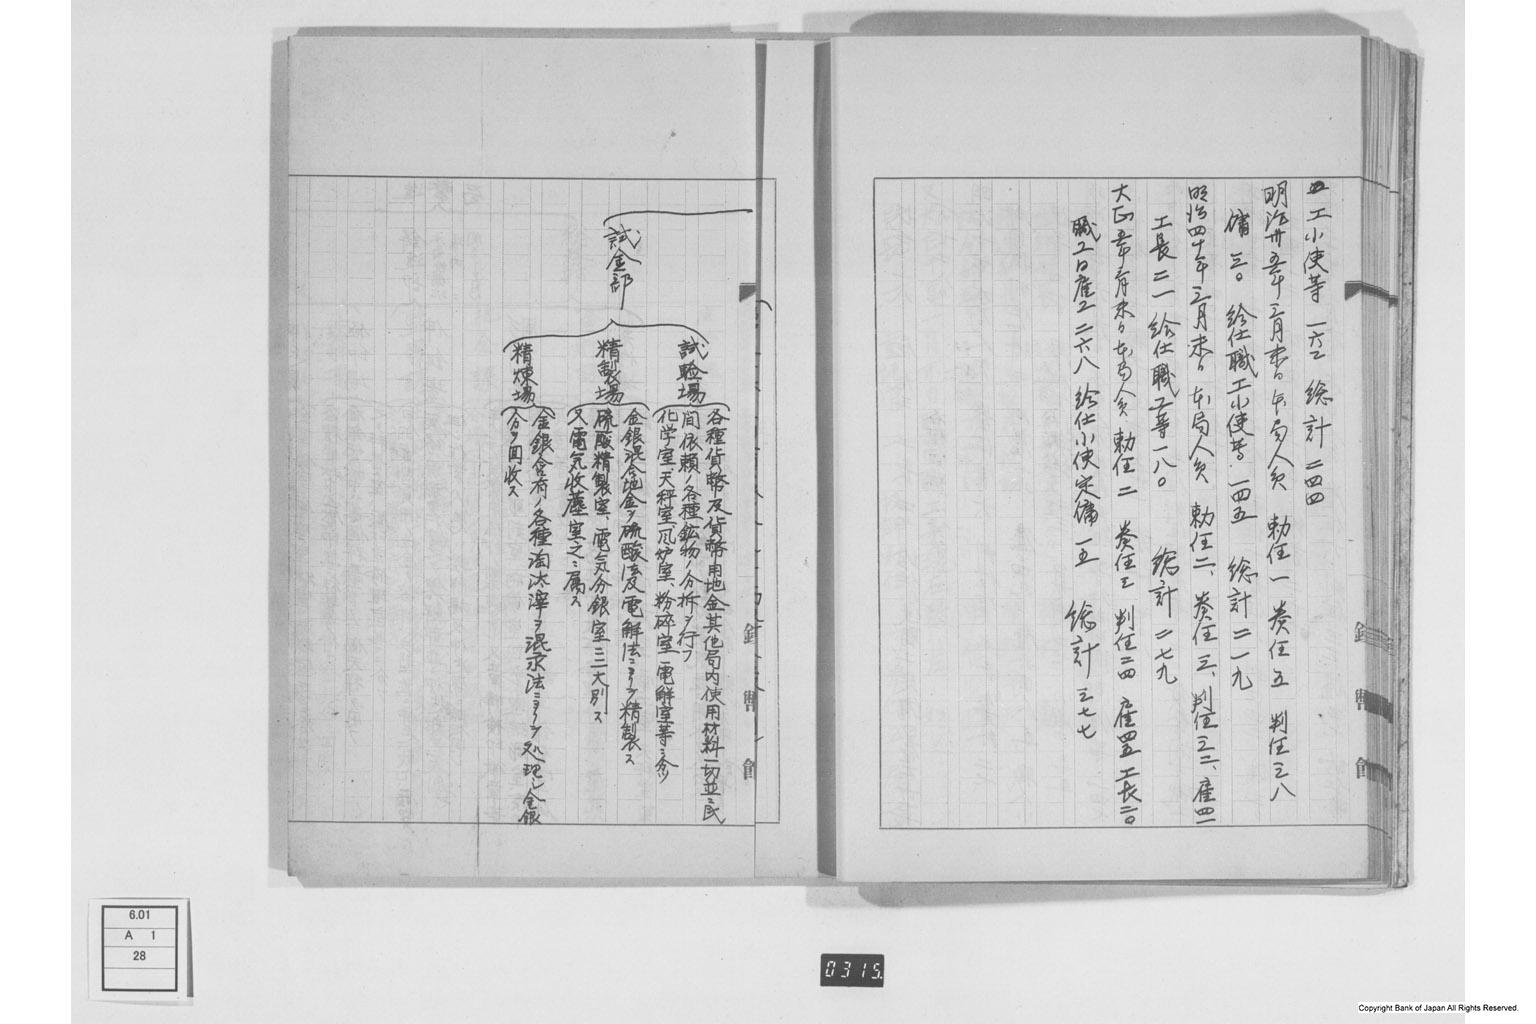 五 工小使等 一六二 総計 二四四
明治卅五年三月末日本局人員 勅任一 奏任五 判任三八
傭 三〇 給仕職工小使等 一四五 総計 二一九
明治四十年三月末日本局人員 勅任二、奏任三、判任三二、雇四一
工長二一 給仕職工等一八〇 総計 二七九
大正五年三月末日本局人員 勅任二 奏任三 判任二四 雇四五 工長二〇
職工日雇工 二六八 給仕小使定傭一五 総計 三七七
試金部
試験場
各種貨幣及貨幣用地金其他局内使用材料一切並ニ民
間依頼ノ各種鉱物ノ分析ヲ行フ
化学室天秤室、風炉室、粉砕室 電解室等ニ分ツ
精製場
金銀混合地金ヲ硫酸法及電解法ニヨリテ精製ス
硫酸精製室、電気分銀室ニ大別ス
又電気收塵室之ニ属ス
精煉場
金銀含有ノ各種淘汰滓ヲ混汞法ニヨリテ処理シ金銀
分ヲ回收ス
6.01
A 1
28
0315
Copyright Bank of Japan All Rights Reserved.